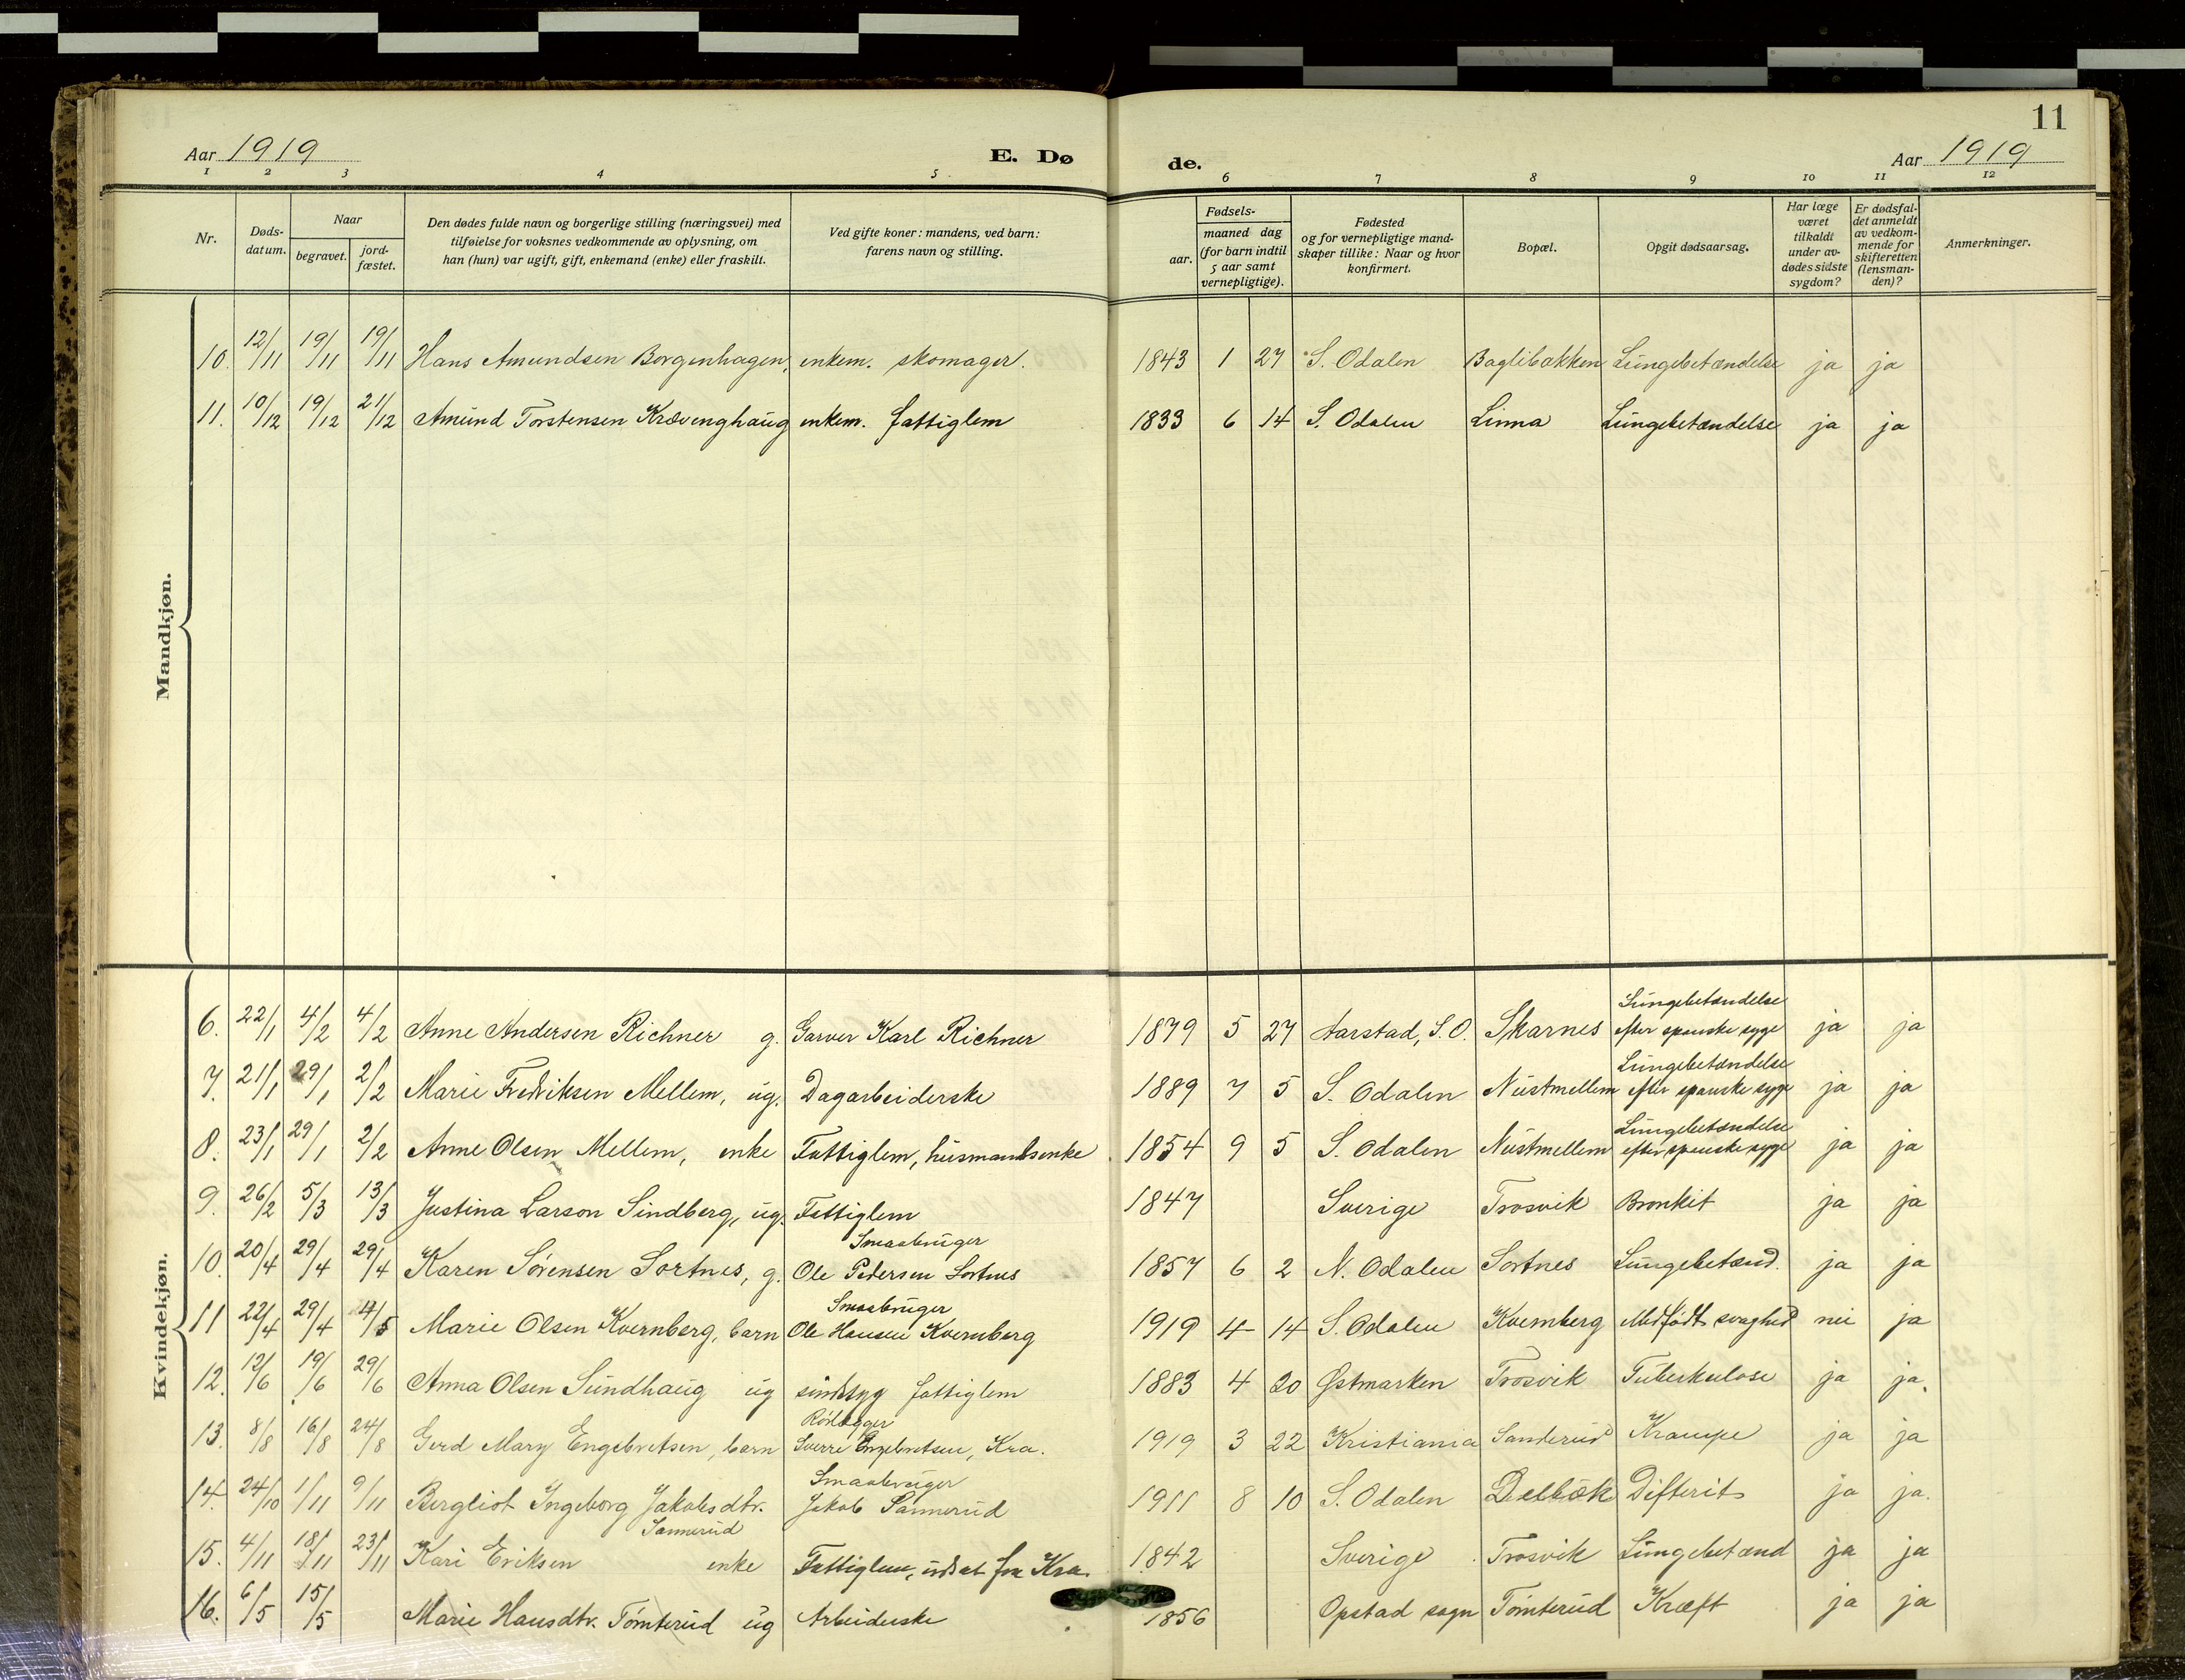 11
Aar 1919 E. Dø de. Aar 1919
1 2 3 4 5 6 7 8 9 10 11 12
Nr.
Døds-
datum.
Naar
begravet.
jord-
fæstet.
Den dødes fulde navn og borgerlige stilling (næringsvei) med
tilføielse for voksnes vedkommende av oplysning, om
han (hun) var ugift, gift, enkemand (enke) eller fraskilt.
Ved gifte koner: mandens, ved barn:
farens navn og stilling.
Fødsels-
aar.
maaned dag
(for barn indtil
5 aar samt
vernepligtige).
Fødested
og for vernepligtige mand-
skaper tillike: Naar og hvor
konfirmert.
Bopæl.
Opgit dødsaarsag.
Har læge
været
tilkaldt
under av-
dødes sidste
sygdom?
Er dødsfal-
det anmeldt
av vedkom-
mende for
skifteretten
(lensman-
den)?
Anmerkninger.
Mandkjøn.
10. 12/11 19/11 19/11 Hans Amundsen Borgenhagen, enkem. skomager. 1843 1 27 S. Odalen Baglibakken Lungebetændelse ja ja
11. 10/12 19/12 21/12 Amund Torstensen Krævenghaug enkem. fattiglem 1833 6 14 S. Odalen Linna Lungebetændelse ja ja
Kvindekjøn.
Lungebetændelse
6. 22/1 4/2 4/2 Anne Andersen Richner g. Garver Karl Richner 1879 5 27 Aarstad, S.O. Skarnes efter spanske syge ja ja
Lungebetændelse
7. 21/1 29/1 2/2 Marie Fredriksen Mellem, ug. Dagarbeiderske 1889 7 5 S. Odalen Nustmellem efter spanske syge ja ja
Lungebetændelse
8. 23/1 29/1 2/2 Anne Olsen Mellem, enke Fattiglem, husmandsenke 1854 9 5 S. Odalen Nustmellem efter spanske syge ja ja
9. 26/2 5/3 13/3 Justina Larson Sindberg, ug. Fattiglem 1847 Sverige Trosvik Bronkit ja ja
Smaabruger
10. 20/4 29/4 29/4 Karen Sørensen Sortnes, g. Ole Pedersen Sortnes 1857 6 2 N. Odalen Sortnes Lungebetænd. ja ja
Smaabruger
11 22/4 29/4 4/5 Marie Olsen Kvernberg, barn Ole Hansen Kvernberg 1919 4 14 S. Odalen Kvernberg Medfødt svaghed nei ja
12. 12/6 19/6 29/6 Anna Olsen Sundhaug ug sindssyg fattiglem 1883 4 20 Østmarken Trosvik Tuberkulose ja ja.
Rørlægger
13. 8/8 16/8 24/8 Gerd Mary Engebretsen, barn Sverre Engebretsen, Kra. 1919 3 22 Kristiania Sanderud Krampe ja ja
Smaabruger
14. 24/10 1/11 9/11 Bergliot Ingeborg Jakobsdtr. Jakob Sannerud 1911 8 10 S. Odalen Delbæk Difterit ja ja.
Sannerud
15. 4/11 18/11 23/11 Kari Eriksen enke Fattiglem, udsat fra Kra. 1842 Sverige Trosvik Lungebetænd ja ja
16. 6/5 15/5 Marie Hansdtr. Tomterud ug Arbeiderske 1856 Opstad sogn Tomterud Kræft ja ja